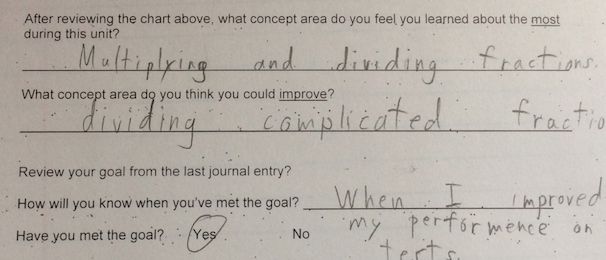 After reviewing the chart above, what concept area do you feel you learned about the most
during this unit?
Multiplying and dividing fractions.
What concept area do you think you could improve?
dividing complicated fractio
Review your goal from the last journal entry?
How will you know when you've met the goal? When I improved
my performence on
tests.
Have you met the goal? Yes No